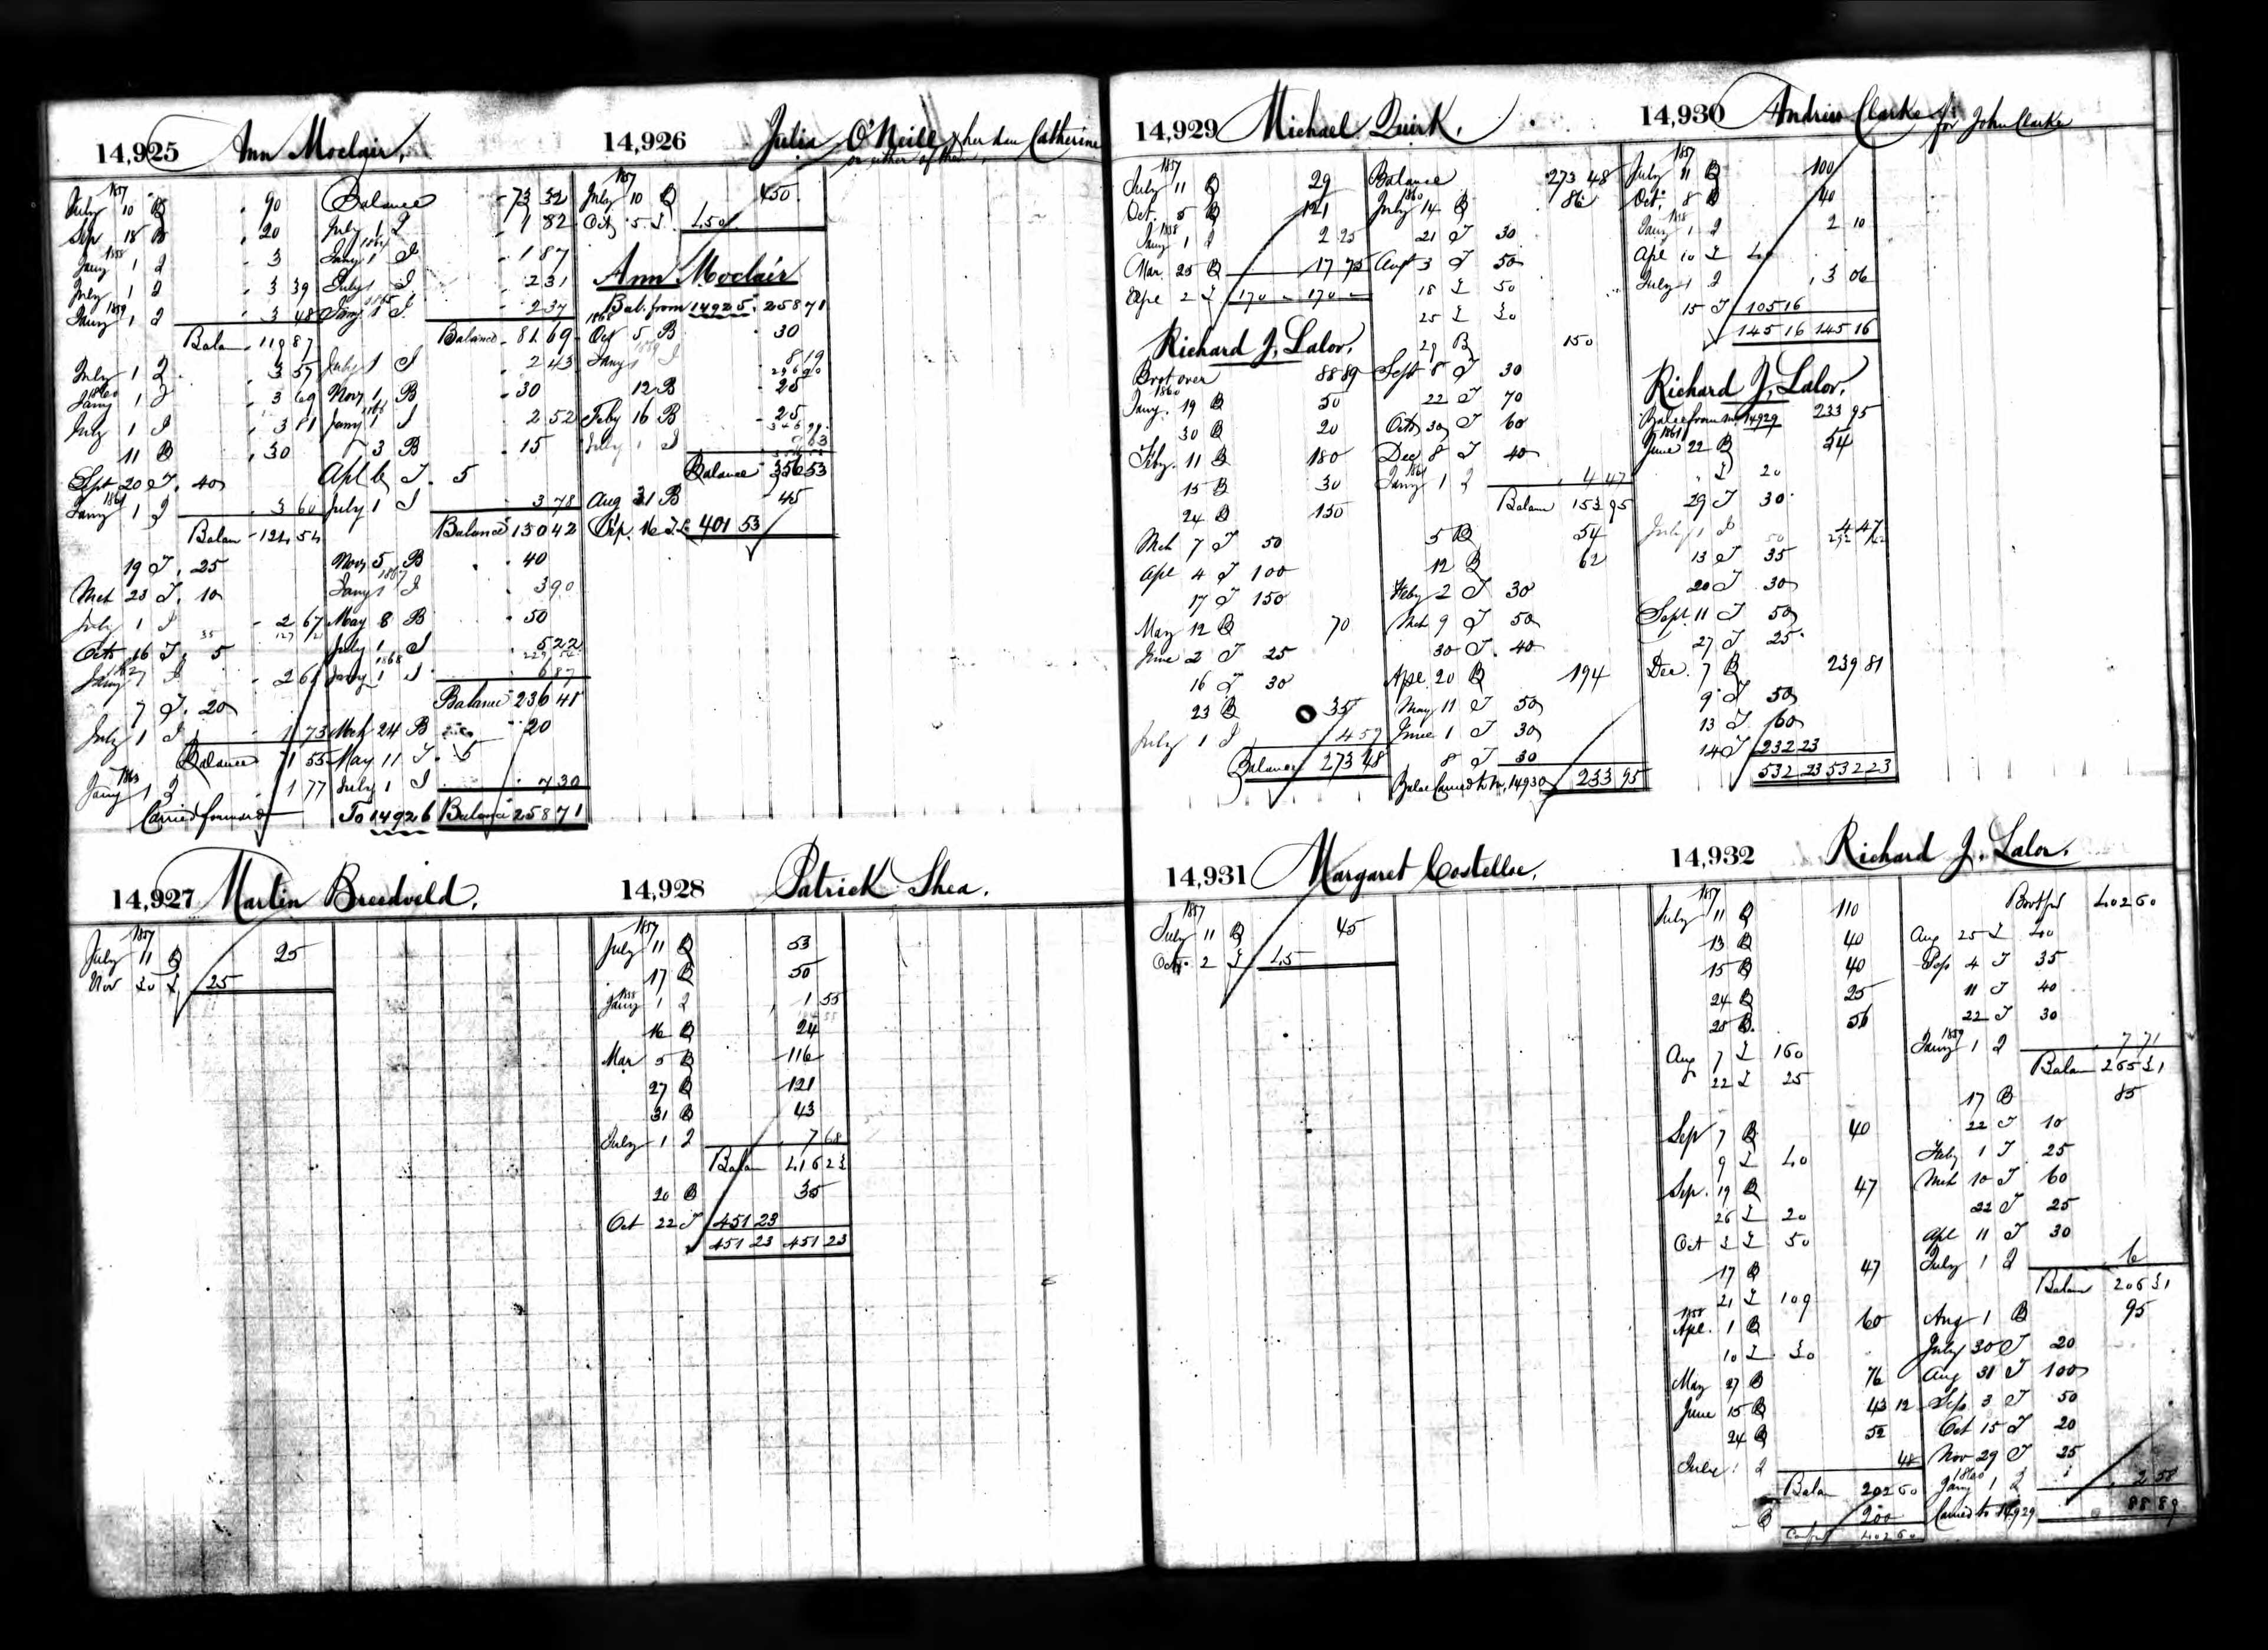 14,925 Ann Moclair,
1857
July 10 B 90
Sep 18 B 20
1858
Jany 1 I 3
July 1 I 3 39
1859
Jany 1 I 3 48
Balan 119 87
July 1 I 3 57
1860
Jany 1 I 3 69
July 1 I 3 81
11 B 30
Sept 20 T. 40
1861
Jany 1 I 3 60
Balan 124 54
19 T. 25
Mch 23 T. 10
July 1 I 2 67
Octr 16 T. 5
1862
Jany 1 I 2 61
7 T. 20
July 1 I 1 73
Balance 71 55
1863
Jany 1 I 1 77
Carried forward
Balance 73 32
July 1 I 1 82
1864
Jany 1 I 1 87
July 1 I 2 31
1865
Jany 1 I 2 37
Balance 81 69
July 1 I 2 43
Novr 1 B 30
1866
Jany 1 I 2 52
3 B 15
Apl 6 T. 5
July 1 I 3 78
Balance 130 42
Novr 5 B 40
1867
Jany 1 I 3 90
May 8 B 50
July 1 I 5 22
1868
Jany 1 I 6 87
Balance 236 41
Mch 24 B 20
May 11 T. 5
July 1 I 7 30
To 14926 Balance 258 71
14,926 Julia O'Neill & her dau Catherine
or either of them,
1857
July 10 B 450
Oct 5 T. 450
Ann Moclair
Bal. from 14925. 258 71
1868
Oct 5 B 30
1869
Jany 1 I 8 19
12 B 25
Feby 16 B 25
July 1 I 9 63
Balance 356 53
Aug 31 B 45
Sep. 16 T. 401 53
14,927 Martin Breedveld,
1857
July 11 B 25
Nov 30 T 25
14,928 Patrick Shea.
1857
July 11 B 53
17 B 50
1858
Jany 1 I 1 55
16 B 24
Mar 5 B 116
27 B 121
31 B 43
July 1 I 7 68
Balan 416 23
20 B 35
Oct 22 T 451 23
451 23 451 23
14,929 Michael Quirk,
1857
July 11 B 29
Oct. 5 B 121
1858
Jany 1 I 2 25
Mar. 25 B 17 75
Apl 2 T 170 170
Richard J. Lalor,
Brot over 88 89
1860
Jany. 19 B 50
30 B 20
Feby. 11 B 180
15 B 30
24 B 150
Mch 7 T 50
Apl 4 T 100
17 T 150
May 12 B 70
June 2 T 25
16 T 30
23 B 35
July 1 I 4 59
Balance 273 48
Balance 273 48
1860
July 14 B 86
21 T 30
Augt 3 T 50
18 T 50
25 T 30
29 B 150
Sept 8 T 30
22 T 70
Octr 30 T 60
Dec 8 T 40
1861
Jany 1 I 4 47
Balan 153 95
5 B 54
12 B 62
Feby 2 T 30
Mch 9 T 50
30 T. 40
Apl. 20 B 194
May 11 T 50
June 1 T 30
8 T 30
Balce Carried to No. 14930 233 95
14,930 Andrew Clarke for John Clarke
1857
July 11 B 100
Oct. 8 B 40
1858
Jany 1 I 2 10
Apl 10 T 40
July 1 I 3 06
15 T 105 16
145 16 145 16
Richard J. Lalor,
Balce from No 14929 233 95
1861
June 22 B 54
" T 20
29 T 30
July 1 I 4 47
13 T 35
20 T 30
Sept. 11 T 50
27 T 25
Dec. 7 B 239 81
9 T 50
13 T. 60
14 T 232 23
532 23 532 23
14,931 Margaret Costelloe,
1857
July 11 B 45
Oct. 2 T 45
14,932 Richard J. Lalor.
1857
July 11 B 110
13 B 40
15 B 40
24 B 25
25 B. 56
Aug 7 T 160
22 T 25
Sep 7 B 40
9 T 40
Sep. 19 B 47
26 T 20
Oct 3 T 50
17 B 47
21 T 109
1858
Apl. 1 B 60
10 T 30
May 27 B 76
June 15 B 43 12
24 B 52
July 1 I 48
Balan 202 60
B 200
Card fwd 402 60
Brot fwd 402 60
Aug 25 T 40
Sep 4 T 35
11 T 40
22 T 30
1859
Jany 1 I 7 71
Balan 265 31
17 B 85
22 T 10
Feby 1 T 25
Mch 10 T 60
22 T 25
Apl 11 T 30
July 1 I 6
Balan 206 31
Aug 1 B 95
July 30 T 20
Aug 31 T 100
Sep 3 T 50
Oct 15 T 20
Nov 29 T 25
1860
Jany 1 I 2 58
Carried to 14,929 88 89